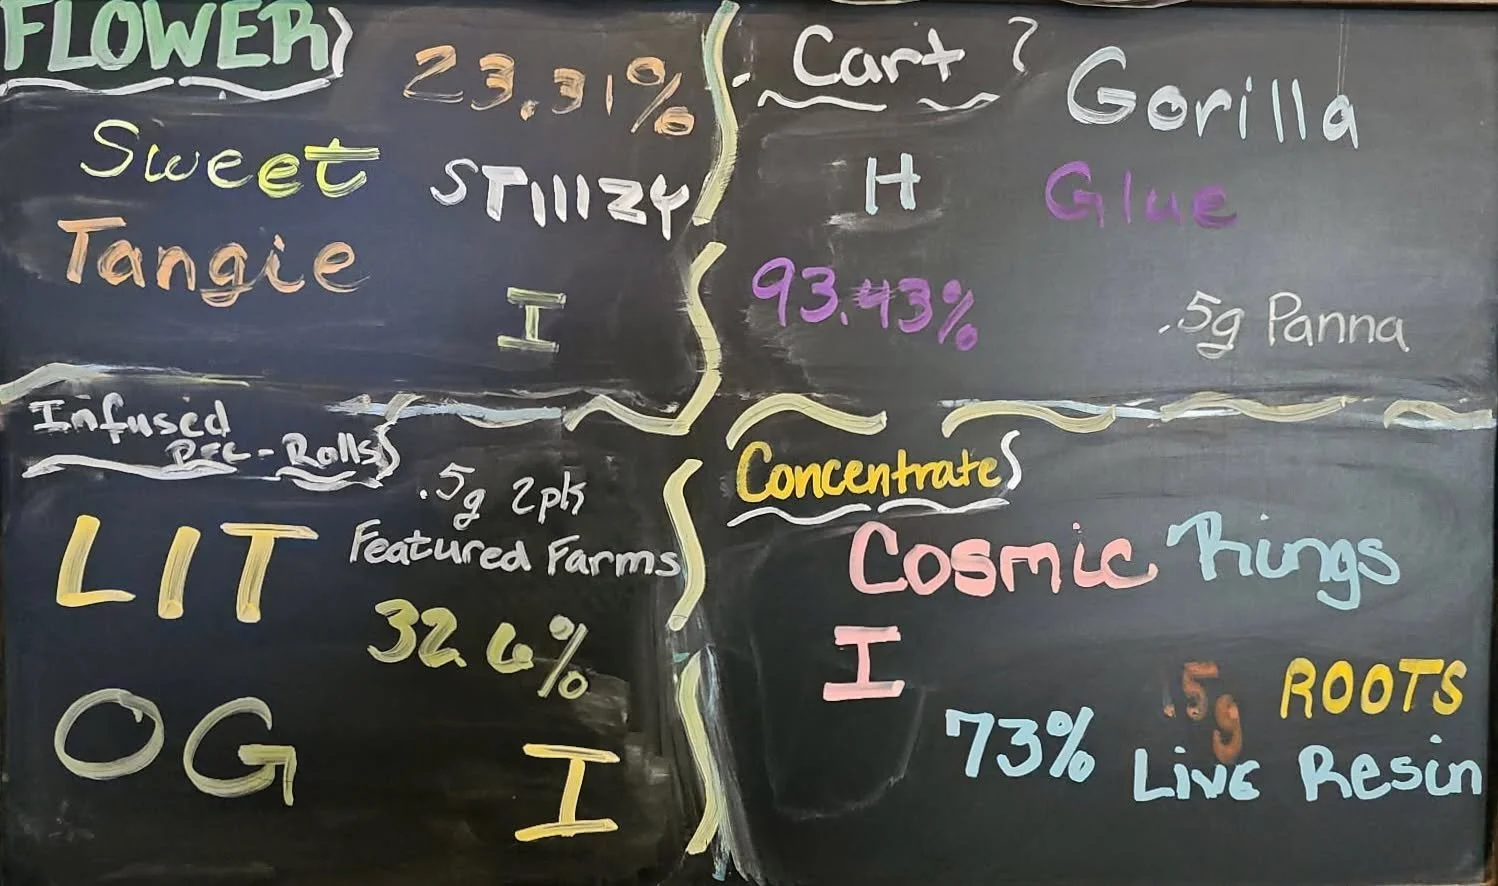 FLOWER
23.31%
Sweet
STIIIZY
Tangie
I
Cart
Gorilla
H
Glue
93.43%
.5g Panna
Infused
Pre-Rolls
.5g 2pk
LIT
Featured Farms
32.6%
OG
I
Concentrate
Cosmic Rings
I
.5g ROOTS
73%
Live Resin